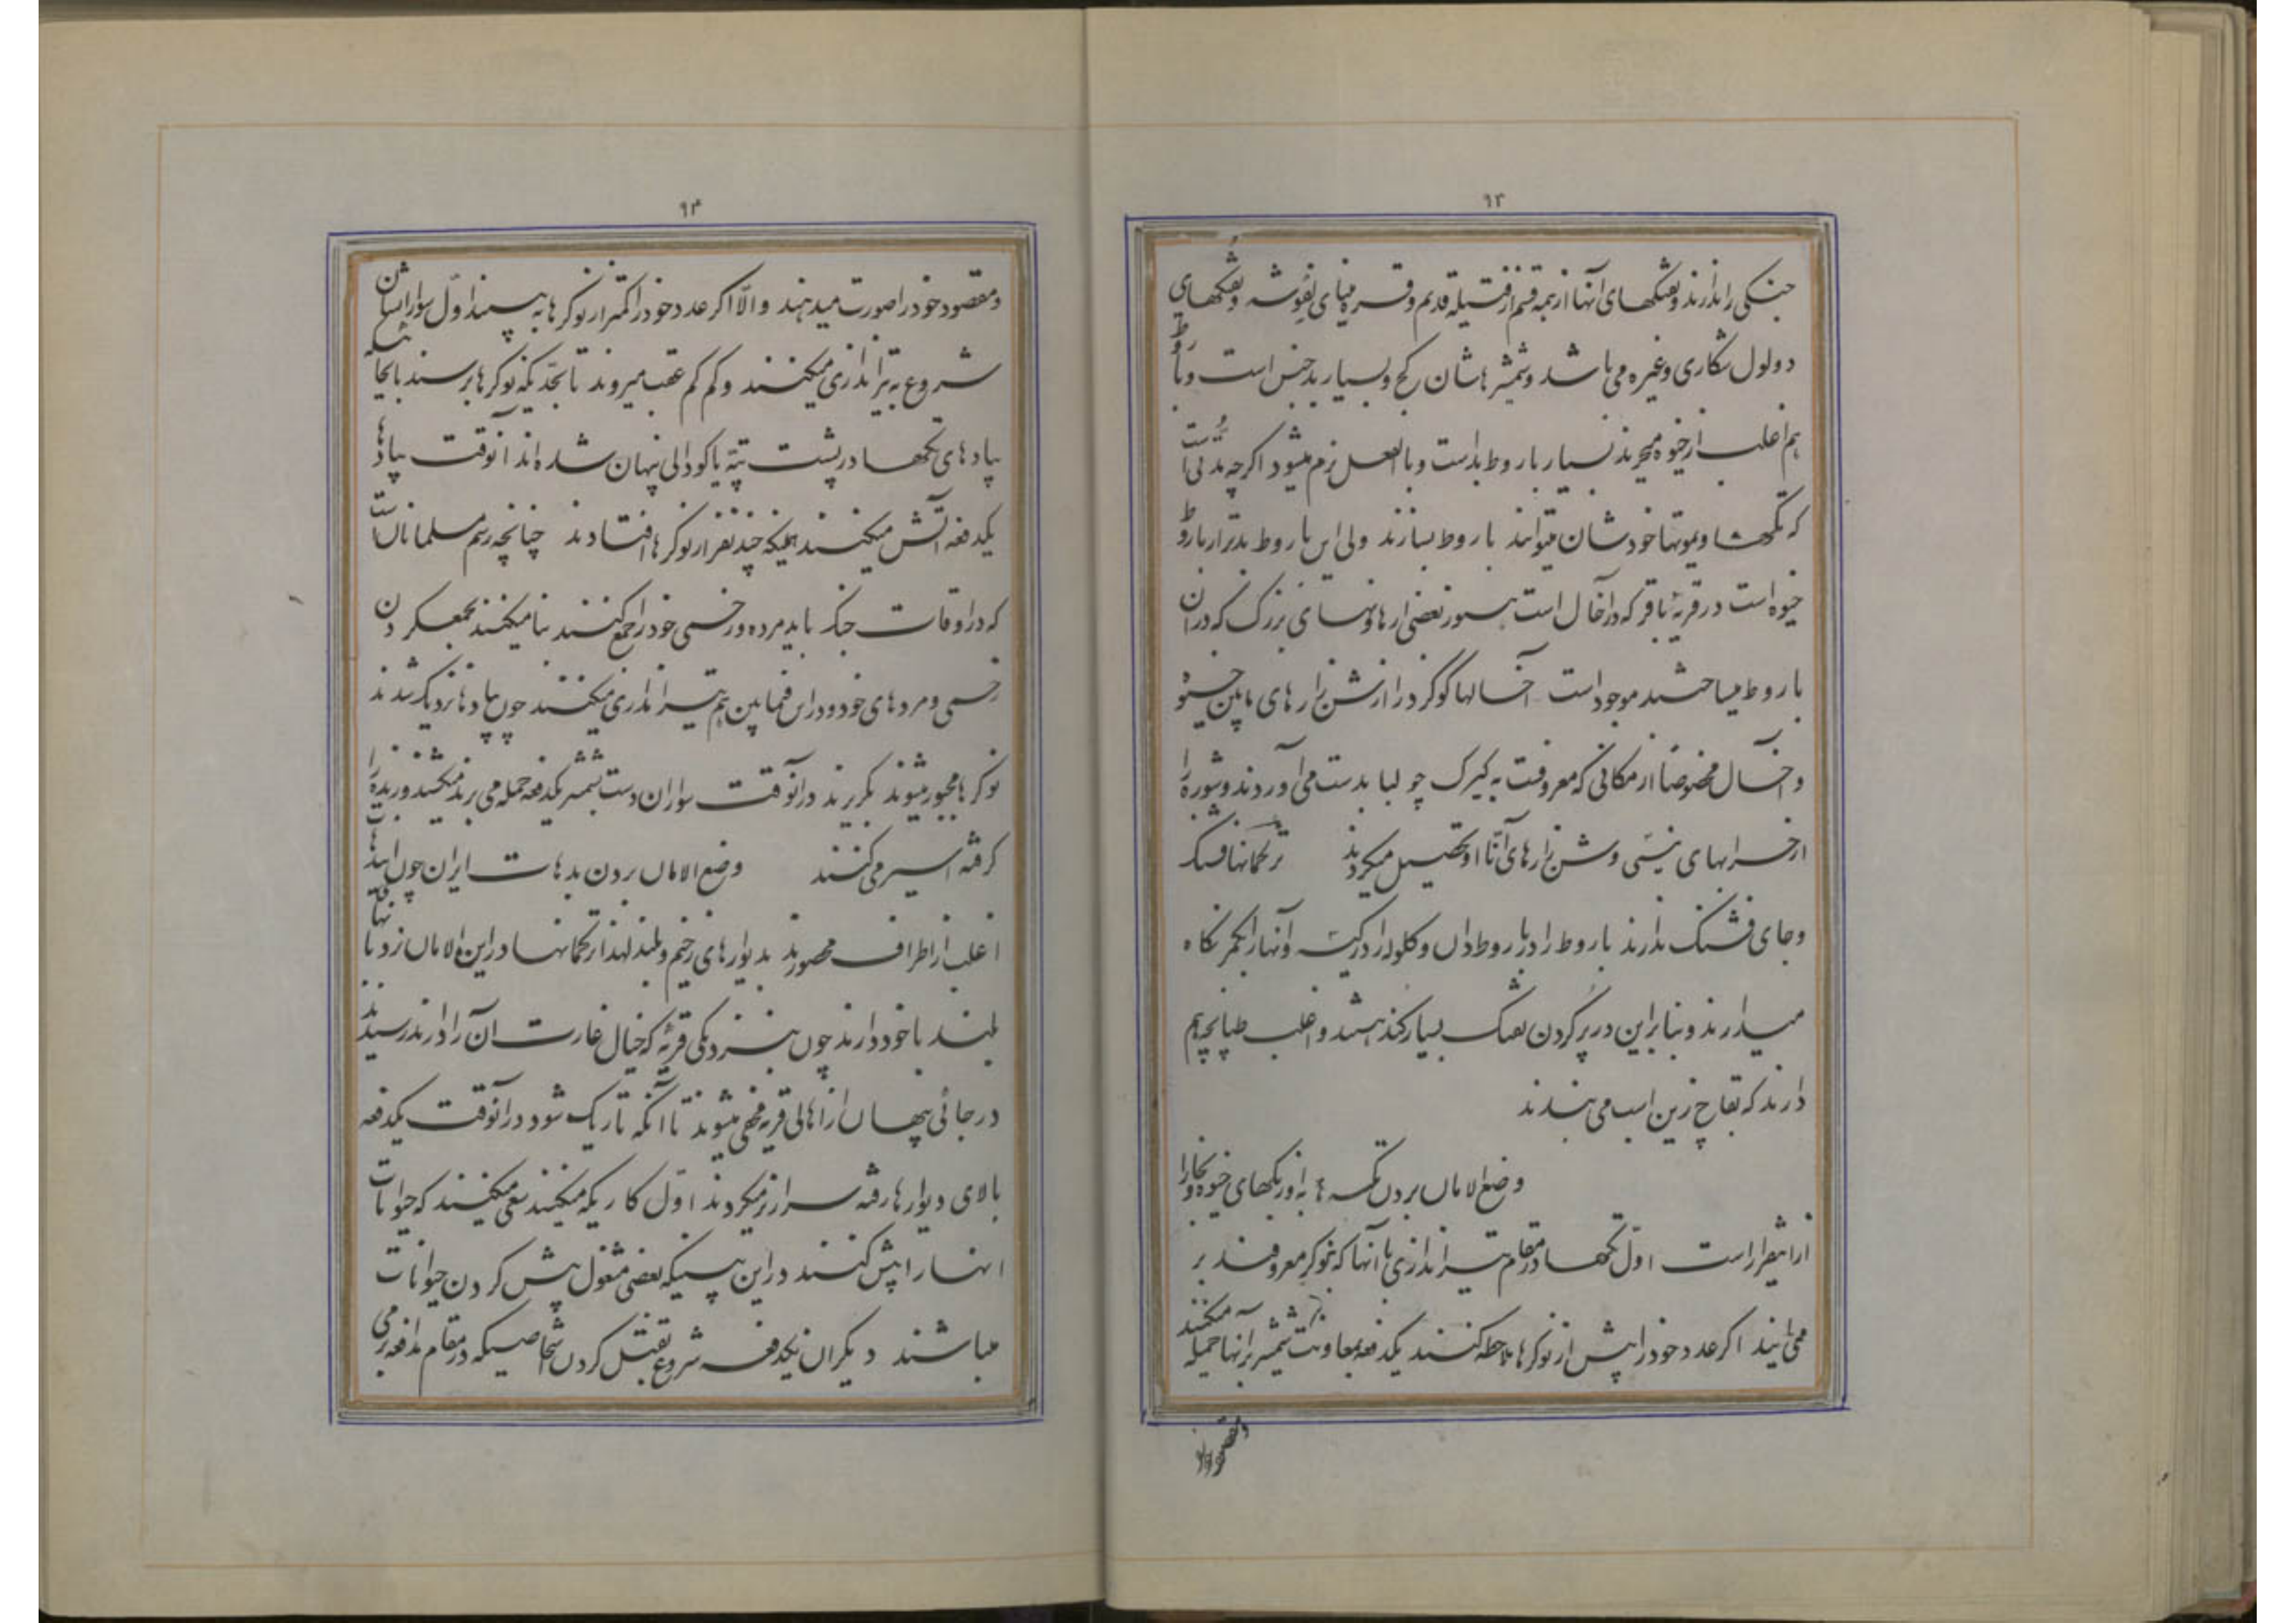 ۹۳
جنگی را ندارند و تفنگهای آنها از همه قسم از فتیله قدیم و قره مینای نفوشه و تفنگهای
دولول شکاری و غیره می باشد و شمشیرهاشان کج و بسیار بد جنس است و باروط
هم اغلب از خیوه میخرند بسیار باروط بد است و بالفعل نرم میشود اگرچه مدتی است
که تکه ها و یموتها خودشان میتوانند باروط بسازند ولی این باروط بدتر از باروط
خیوه است در قریه باقر که در آخال است هنوز بعضی از هاونهای بزرگ که در آن
باروط میساختند موجود است آخالها گوگرد را از شن زارهای مابین خیوه
و آخال مخصوصاً از مکانی که معروفست به کیرک چولبا بدست می آوردند و شوره را
از خرابهای نیسی و شن زارهای آتا او تحصیل میکردند ترکمانها فشنگ
و جای فشنگ ندارند باروط را در باروط دان و گلوله را در کیسه و آنها را بکمر نگاه
میدارند و بنابراین در پر کردن تفنگ بسیار کند هستند و اغلب طپانچه هم
دارند که بقاچ زین اسب می بندند
وضع الامان بردن تکه ها به اوزبکهای خیوه و بخارا
از اینقرار است اول تکه ها در مقام تیراندازی با آنها که بنوکر معروفند بر
می آیند اگر عدد خود را بیش از نوکرها ملاحظه کنند یکدفعه بمعاونت شمشیر بر آنها حمله میکنند
و مقصود خود را
۹۴
و مقصود خود را صورت میدهند و الّا اگر عدد خود را کمتر از نوکرها به بینند اوّل سوارانشان
شروع به تیراندازی میکنند و کم کم عقب میروند تا بحدّیکه نوکرها برسند بانجا که
پیادهای تکه ها در پشت تپّه یا گودالی پنهان شده اند آنوقت پیاده ها
یکدفعه آتش میکنند همینکه چند نفر از نوکرها افتادند چنانچه رسم مسلمانان است
که در اوقات جنگ باید مرده و زخمی خود را جمع کنند بنا میکنند بجمع کردن
زخمی و مردهای خود و در این فیمابین هم تیراندازی میکنند چون پیاده ها نزدیک شدند
نوکرها مجبور میشوند بگریزند در آنوقت سواران دست بشمشیر یکدفعه حمله می برند میکشند و زنده را
گرفته اسیر می کنند وضع الامان بردن بدهات ایران چون این دهات
اغلب از اطراف محصورند بدیوارهای ضخیم و بلند لهذا ترکمانها در این الامان نردبانهای
بلند با خود دارند چون بنزدیکی قریه که خیال غارت آن را دارند رسیدند
در جائی پنهان از اهالی قریه مخفی میشوند تا آنکه تاریک شود در آنوقت یکدفعه
بالای دیوارها رفته سرازیر میگردند اول کاریکه میکنند سعی میکنند که حیوانات
انها را پیش کنند در این بینیکه بعضی مشغول پیش کردن حیوانات
میباشند دیگران یکدفعه شروع بقتل کردن اشخاصیکه در مقام مدافعه بر می